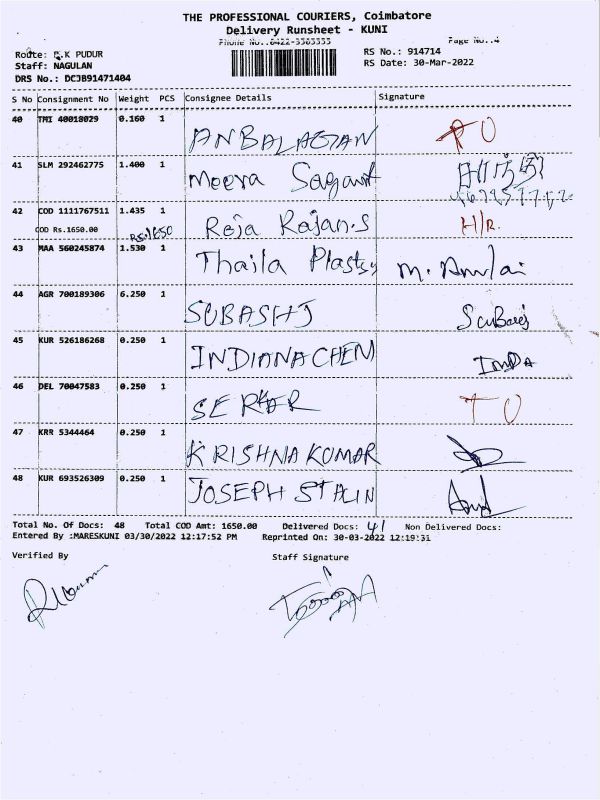 THE PROFESSIONAL COURIERS, Coimbatore
Delivery Runsheet - KUNI
Phone No.:0422-3583333 Page No..4
Route: K.K PUDUR RS No.: 914714
Staff: NAGULAN RS Date: 30-Mar-2022
DRS No.: DCJB91471404
S No Consignment No Weight PCS Consignee Details Signature
40 TMI 40018029 0.160 1 ANBALAGAN
41 SLM 292462775 1.400 1 Meera
42 COD 1111767511 1.435 1 Roja Rajan.s H/R.
COD Rs.1650.00 RS.1650
43 MAA 560245874 1.530 1 Thaila
44 AGR 700189306 6.250 1 SUBASH J
45 KUR 526186268 0.250 1 INDIANA CHEM
46 DEL 70047583 0.250 1 SEKAR
47 KRR 5344464 0.250 1 KRISHNA KUMAR
48 KUR 693526309 0.250 1 JOSEPH STALIN
Total No. Of Docs: 48 Total COD Amt: 1650.00 Delivered Docs: 41 Non Delivered Docs:
Entered By :MARESKUNI 03/30/2022 12:17:52 PM Reprinted On: 30-03-2022 12:19:31
Verified By Staff Signature